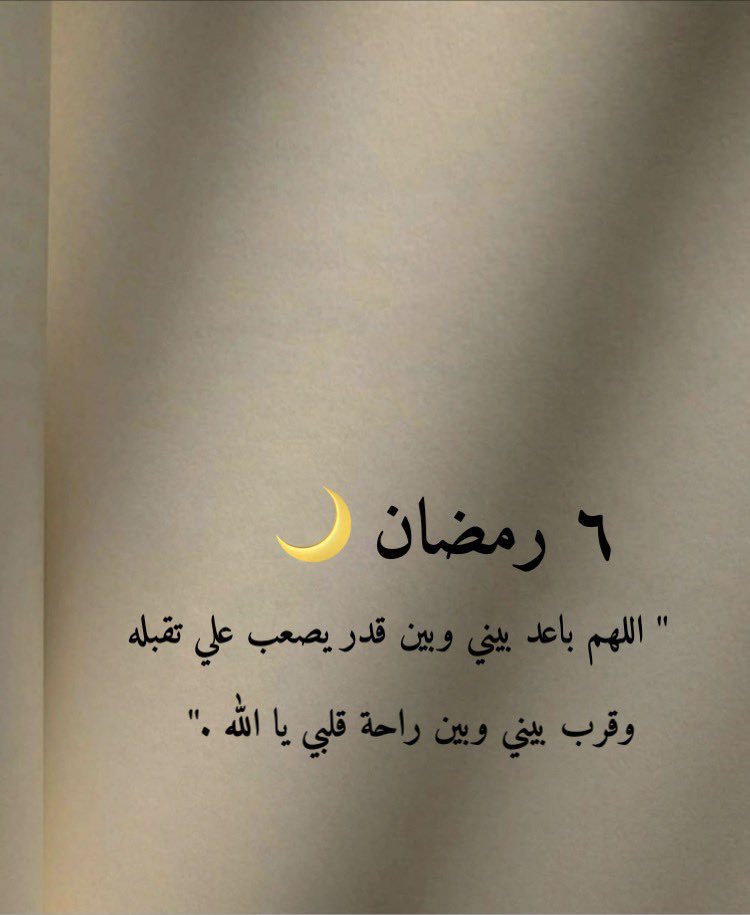 ٦ رمضان 🌙
" اللهم باعد بيني وبين قدر يصعب علي تقبله
وقرب بيني وبين راحة قلبي يا الله ."